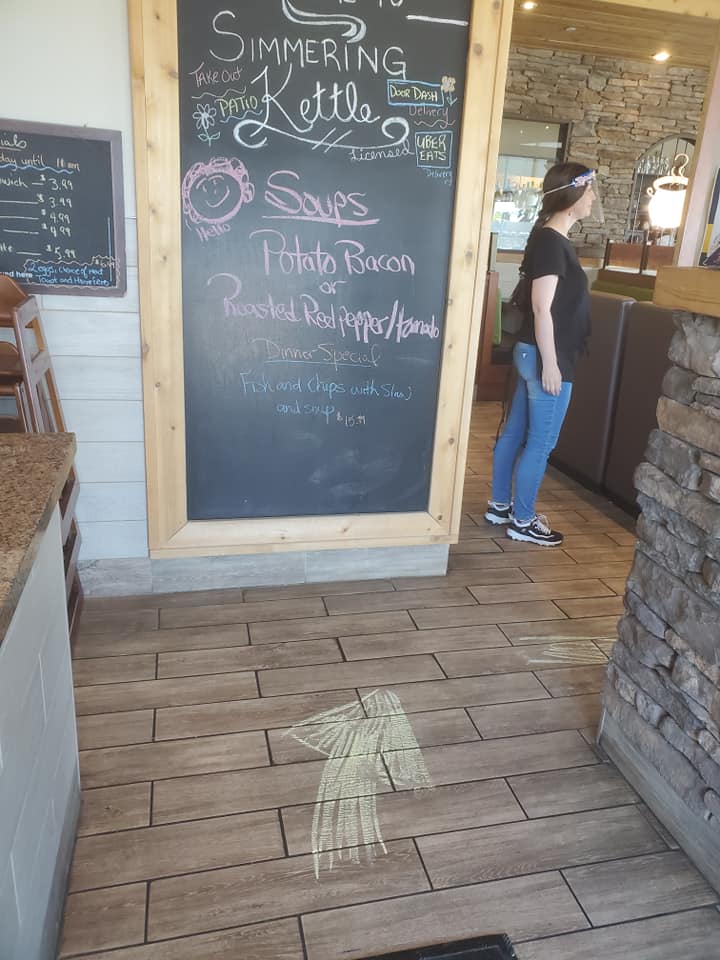 SIMMERING
Kettle
Take Out
PATIO
Licensed
DOOR DASH
Delivery
UBER
EATS
Delivery
Hello
Soups
Potato Bacon
or
Roasted Red Pepper/tomado
Dinner Special
Fish and Chips with Slaw
and soup $15.99
ials
day until 11am
wich - 3.99
3.99
4.99
4.99
5.99
2 eggs, choice of meat
Toast and Homefries